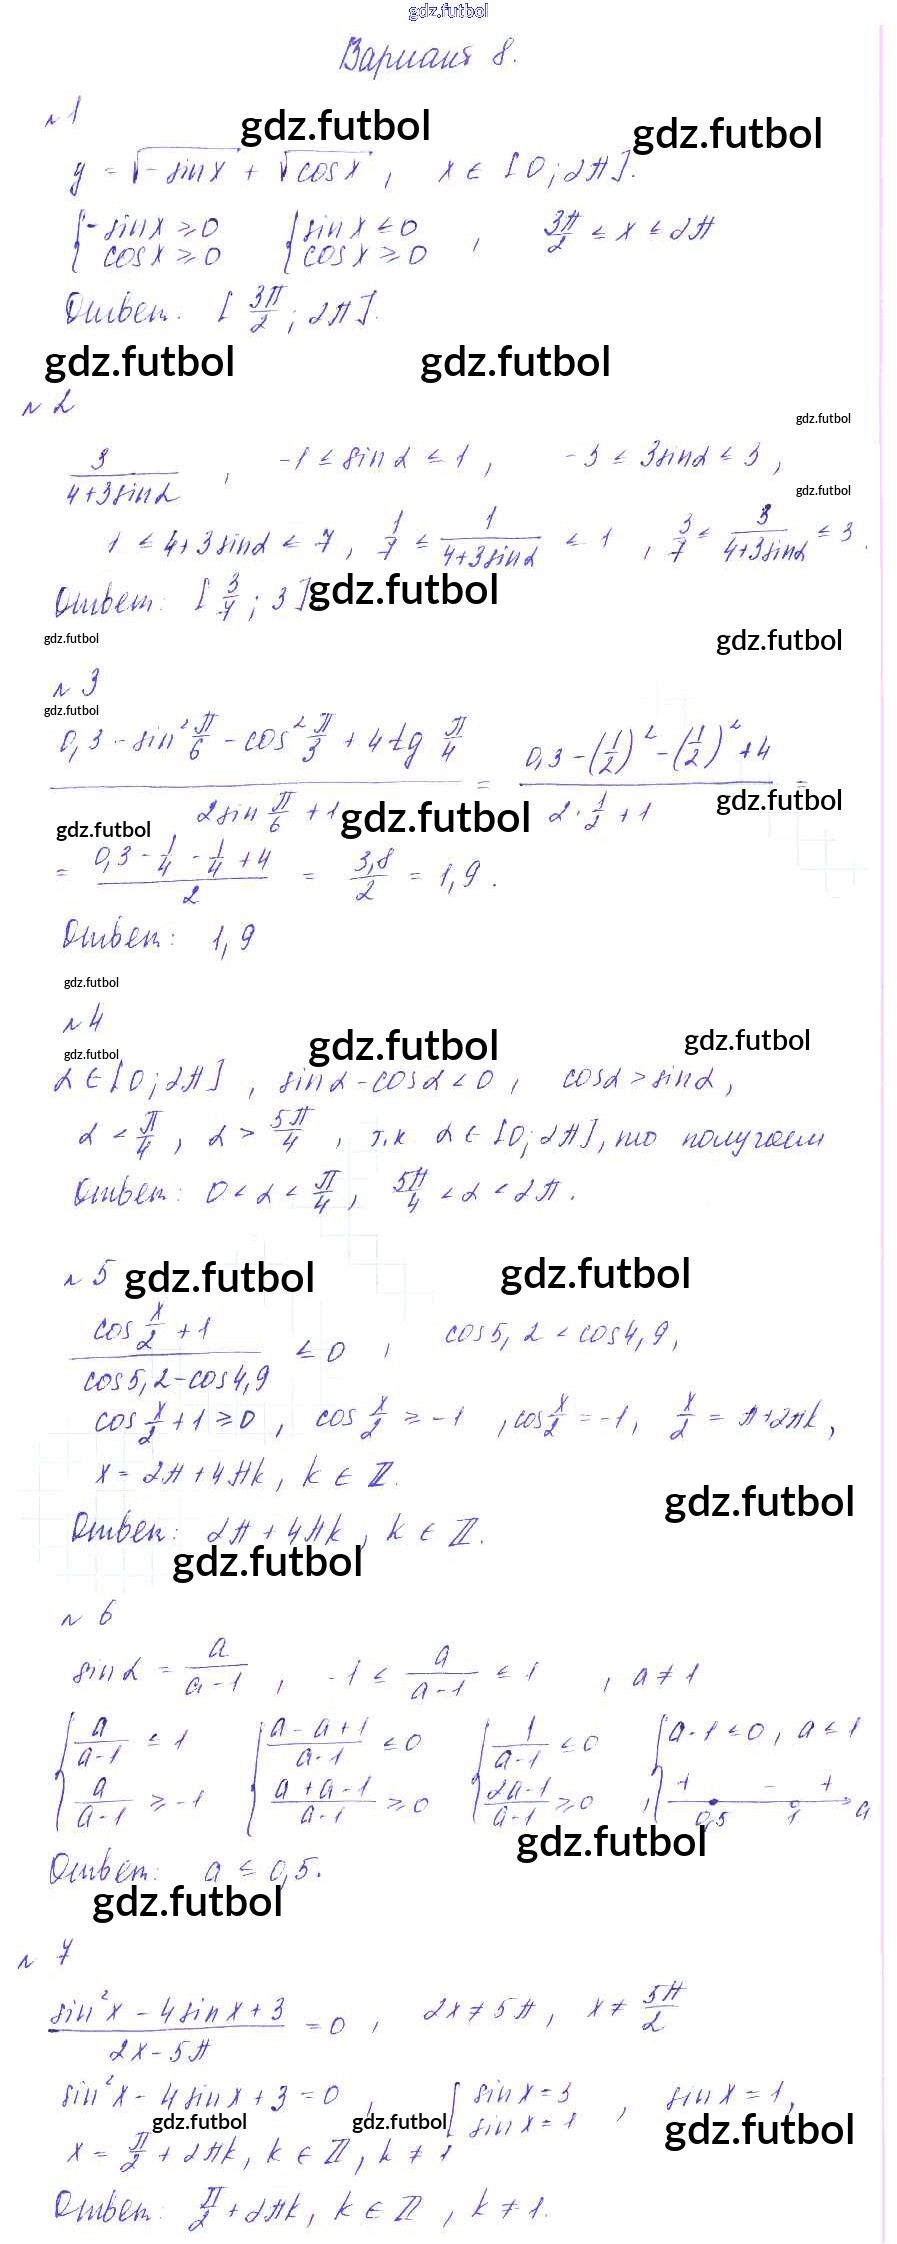 gdz.futbol
Вариант 8.
№1
gdz.futbol gdz.futbol
y = √-sinx + √cosx, x ∈ [0; 2π].
{-sinx ≥ 0 {sinx ≤ 0
cosx ≥ 0 cosx ≥ 0 , 3π/2 ≤ x ≤ 2π
Ответ: [3π/2; 2π].
gdz.futbol gdz.futbol
№2
gdz.futbol
3/(4+3sinα), -1 ≤ sinα ≤ 1, -3 ≤ 3sinα ≤ 3,
gdz.futbol
1 ≤ 4+3sinα ≤ 7, 1/7 ≤ 1/(4+3sinα) ≤ 1, 3/7 ≤ 3/(4+3sinα) ≤ 3.
Ответ: [3/7; 3] gdz.futbol
gdz.futbol gdz.futbol
№3
gdz.futbol
(0,3 - sin² π/6 - cos² π/3 + 4tg π/4)/(2sin π/6 + 1) = (0,3 - (1/2)² - (1/2)² + 4)/(2·1/2 + 1) =
gdz.futbol gdz.futbol gdz.futbol
= (0,3 - 1/4 - 1/4 + 4)/2 = 3,8/2 = 1,9.
Ответ: 1,9
gdz.futbol
№4
gdz.futbol gdz.futbol gdz.futbol
α ∈ [0; 2π], sinα - cosα < 0, cosα > sinα,
α < π/4, α > 5π/4, т.к α ∈ [0; 2π], то получаем
Ответ: 0 < α < π/4, 5π/4 < α < 2π.
№5 gdz.futbol gdz.futbol
(cos x/2 + 1)/(cos5,2 - cos4,9) ≤ 0, cos5,2 < cos4,9,
cos x/2 + 1 ≥ 0, cos x/2 ≥ -1, cos x/2 = -1, x/2 = π+2πk,
x = 2π + 4πk, k ∈ ℤ.
gdz.futbol
Ответ: 2π + 4πk, k ∈ ℤ.
gdz.futbol
№6
sinα = a/(a-1), -1 ≤ a/(a-1) ≤ 1, a ≠ 1
{a/(a-1) ≤ 1 {(a-a+1)/(a-1) ≤ 0 {1/(a-1) ≤ 0 {a-1 ≤ 0, a ≤ 1
a/(a-1) ≥ -1 (a+a-1)/(a-1) ≥ 0 (2a-1)/(a-1) ≥ 0, + - +
0,5 1 a
gdz.futbol
Ответ: a ≤ 0,5.
gdz.futbol
№7
(sin²x - 4sinx + 3)/(2x - 5π) = 0, 2x ≠ 5π, x ≠ 5π/2
sin²x - 4sinx + 3 = 0, [sinx = 3
sinx = 1, sinx = 1,
gdz.futbol gdz.futbol gdz.futbol
x = π/2 + 2πk, k ∈ ℤ, k ≠ 1
Ответ: π/2 + 2πk, k ∈ ℤ, k ≠ 1.